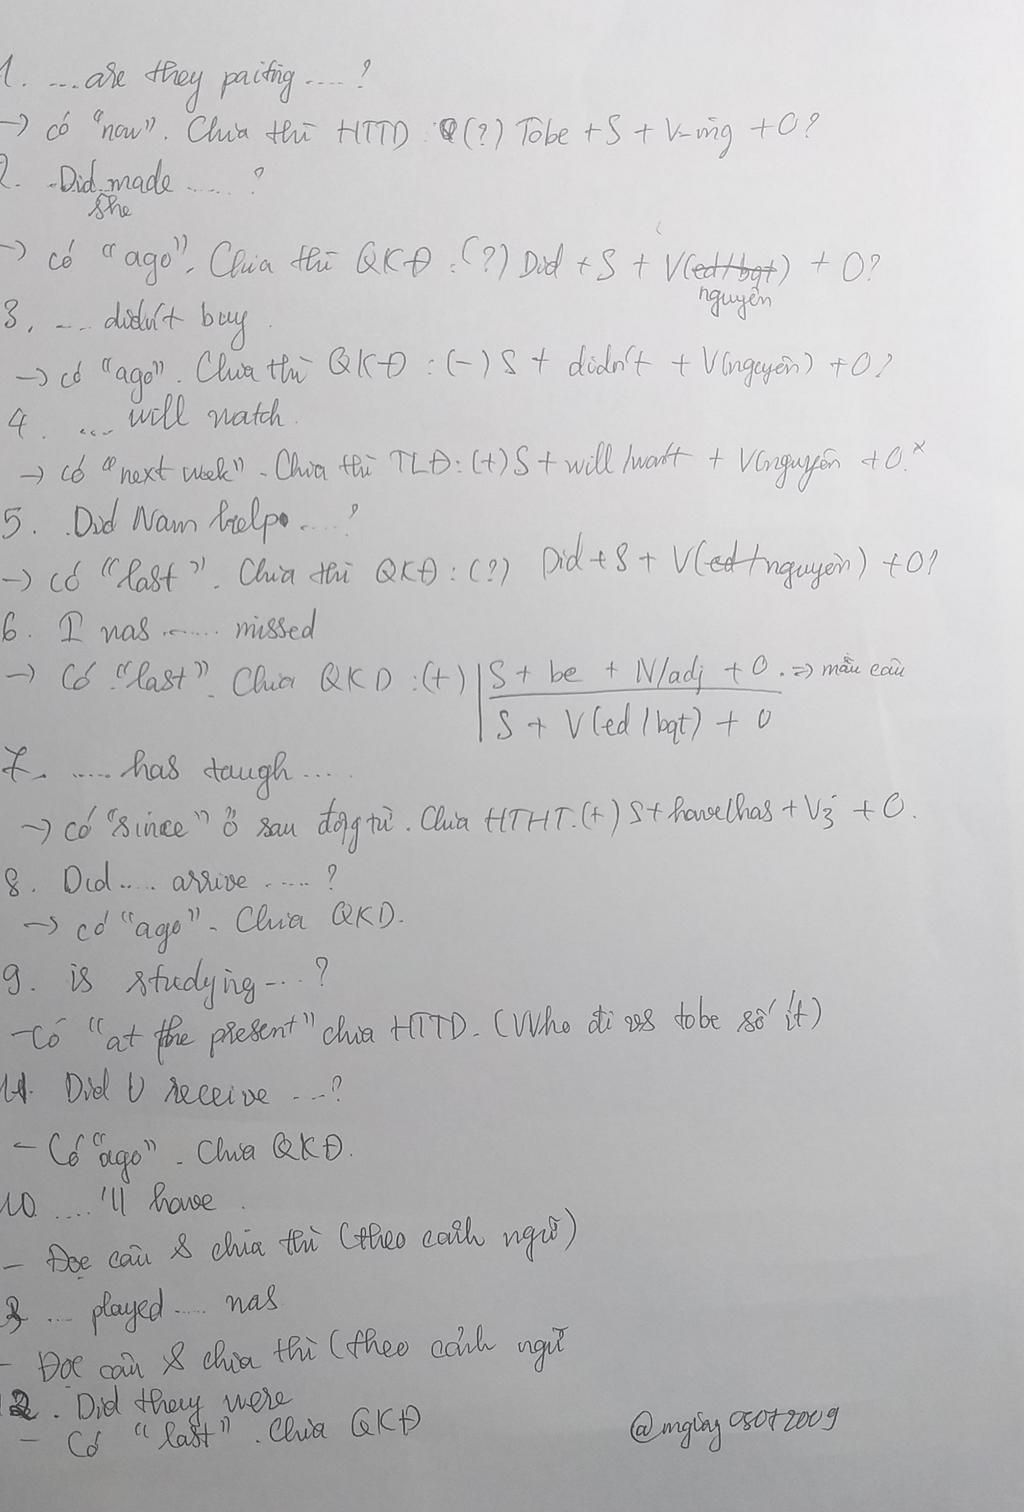 1. ....are they paiting ....?
→ có "now". Chia thì HTTD (?) Tobe + S + V-ing + O?
2. Did made ......?
she
→ có "ago". Chia thì QKĐ : (?) Did + S + V(ed/bqt) + O?
nguyên
3. .... didn't buy
→ có "ago". Chia thì QKĐ : (-) S + didn't + V(nguyên) + O?
4. .... will watch.
→ có "next week". Chia thì TLĐ : (+) S + will /won't + V(nguyên + O.
5. Did Nam help ....?
→ có "last". Chia thì QKĐ : (?) Did + S + V(ed + nguyên) + O?
6. I was ...... missed
→ Có "last". Chia QKD : (+) S + be + N/adj + O. => mẫu câu
S + V(ed / bqt) + O
7. ..... has taugh ....
→ có "since" ở sau động từ. Chia HTHT. (+) S + have/has + V3 + O.
8. Did .... arrive .....?
→ có "ago". Chia QKD.
9. is studying ....?
- Có "at the present" chia HTTD. (Who đi vs tobe số ít)
11. Did U receive ....?
- Có "ago". Chia QKĐ.
10. .... 'll have.
- Đọc câu & chia thì (theo cảnh ngữ)
.... played ..... was
- Đọc câu & chia thì (theo cảnh ngữ
12. Did they were
- Có "last". Chia QKĐ